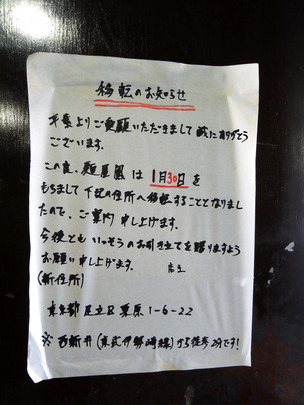 移転のお知らせ
平素よりご愛顧いただきまして誠にありがとう
ございます。
この度、麺屋凰は1月30日を
もちまして下記の住所へ移転することとなりまし
たので、ご案内申し上げます。
今後ともいっそうのお引き立てを賜りますよう
お願い申し上げます。 店主
(新住所)
東京都足立区栗原1-6-22
※西新井(東武伊勢崎線)から徒歩2分です!